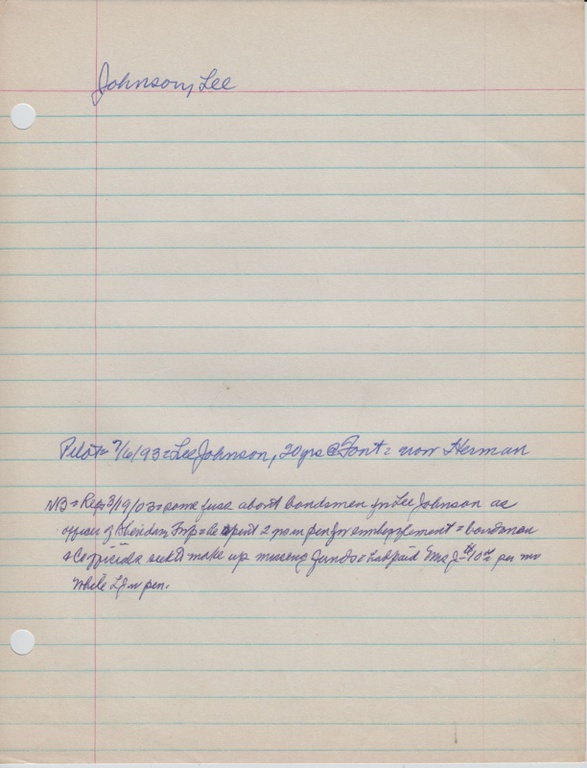 Johnson, Lee
Pilot = 7/6/93 = Lee Johnson, 20 yrs @ Font = now Herman
NB = Rep 3/19/03 = some fuss about bondsmen for Lee Johnson as
officer of Sheridan Twp = he spent 2 yrs in pen for embezzlement = bondsmen
& Co officials make up missing funds = had paid Mrs J $10 per mo
while LJ in pen.